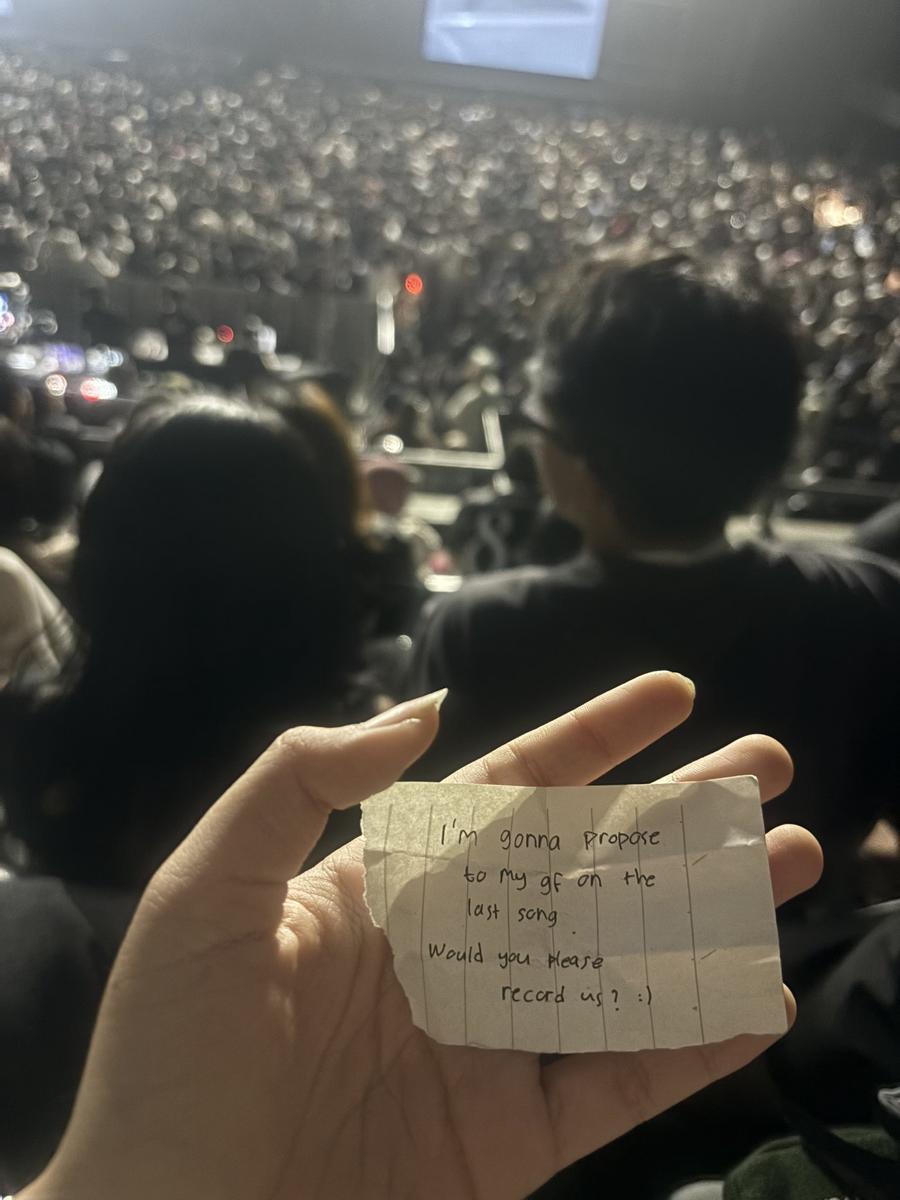 I'm gonna propose
to my gf on the
last song.
Would you please
record us? :)